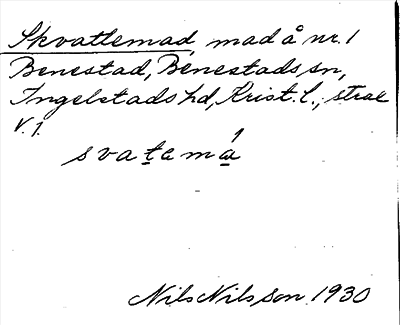 Skvattemad, mad å nr. 1
Benestad, Benestads sn,
Ingelstads hd, Krist. l., strax
V. 1.
svatema 1
Nils Nilsson 1930